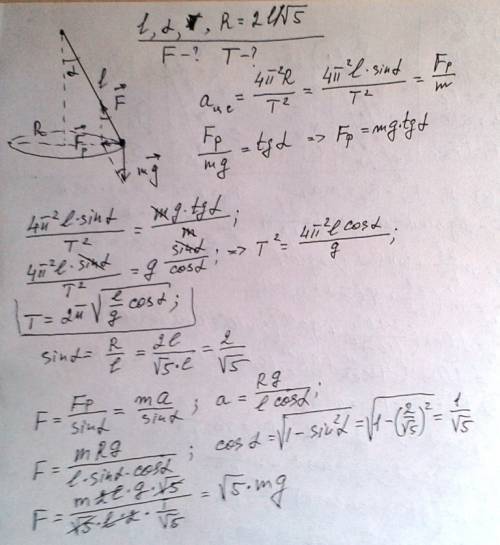 l, α, r, R = 2l/√5
F - ? T - ?
α
l
F⃗
R
F⃗р
mg⃗
aцс = 4π²R/T² = 4π²l·sinα/T² = Fр/m
Fр/mg = tgα => Fр = mg·tgα
4π²l·sinα/T² = mg·tgα/m;
4π²l·sinα/T² = g sinα/cosα; => T² = 4π²l cosα/g;
T = 2π√(l/g cosα);
sinα = R/l = 2l/√5·l = 2/√5
F = Fр/sinα = ma/sinα; a = Rg/l cosα;
F = mRg/l·sinα·cosα; cosα = √(1-sin²α) = √(1-(2/√5)²) = 1/√5
F = m2l·g·√5/√5·l·2·1/√5 = √5·mg